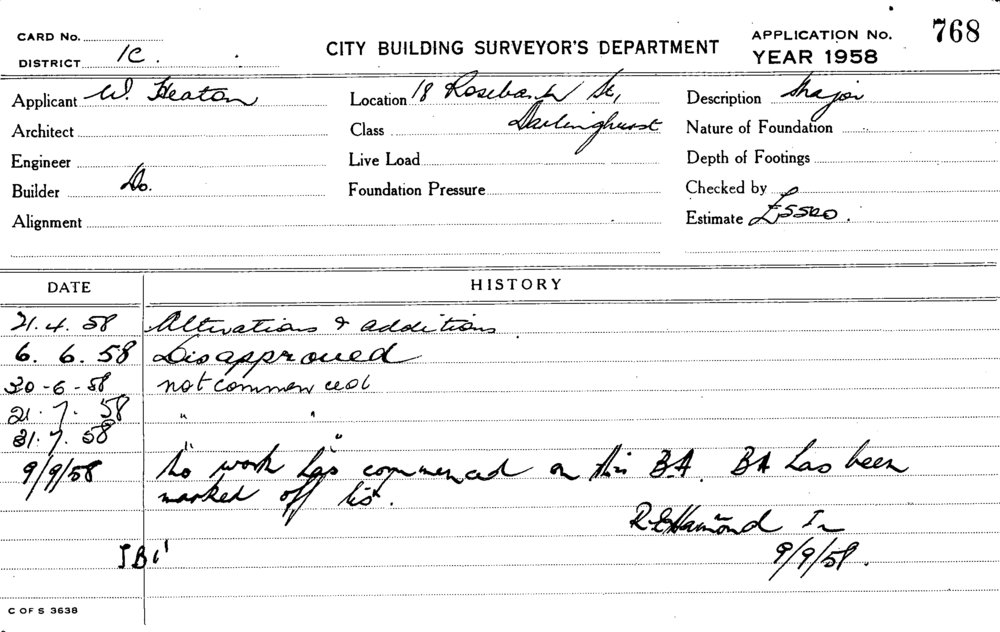 CARD No.
DISTRICT 1C.
CITY BUILDING SURVEYOR'S DEPARTMENT
APPLICATION No. 768
YEAR 1958
Applicant W. Heaton
Location 18 Rosebank St,
Description Major
Architect
Class Darlinghurst
Nature of Foundation
Engineer
Live Load
Depth of Footings
Builder Do.
Foundation Pressure
Checked by
Alignment
Estimate £5500.
DATE HISTORY
21.4.58 Alterations & additions
6.6.58 Disapproved
30-6-58 not commenced
21.7.58 " "
31.7.58 " "
9/9/58 No work has commenced on this B.A. BA has been
marked off list.
R E Hammond In
9/9/58.
C OF S 3638